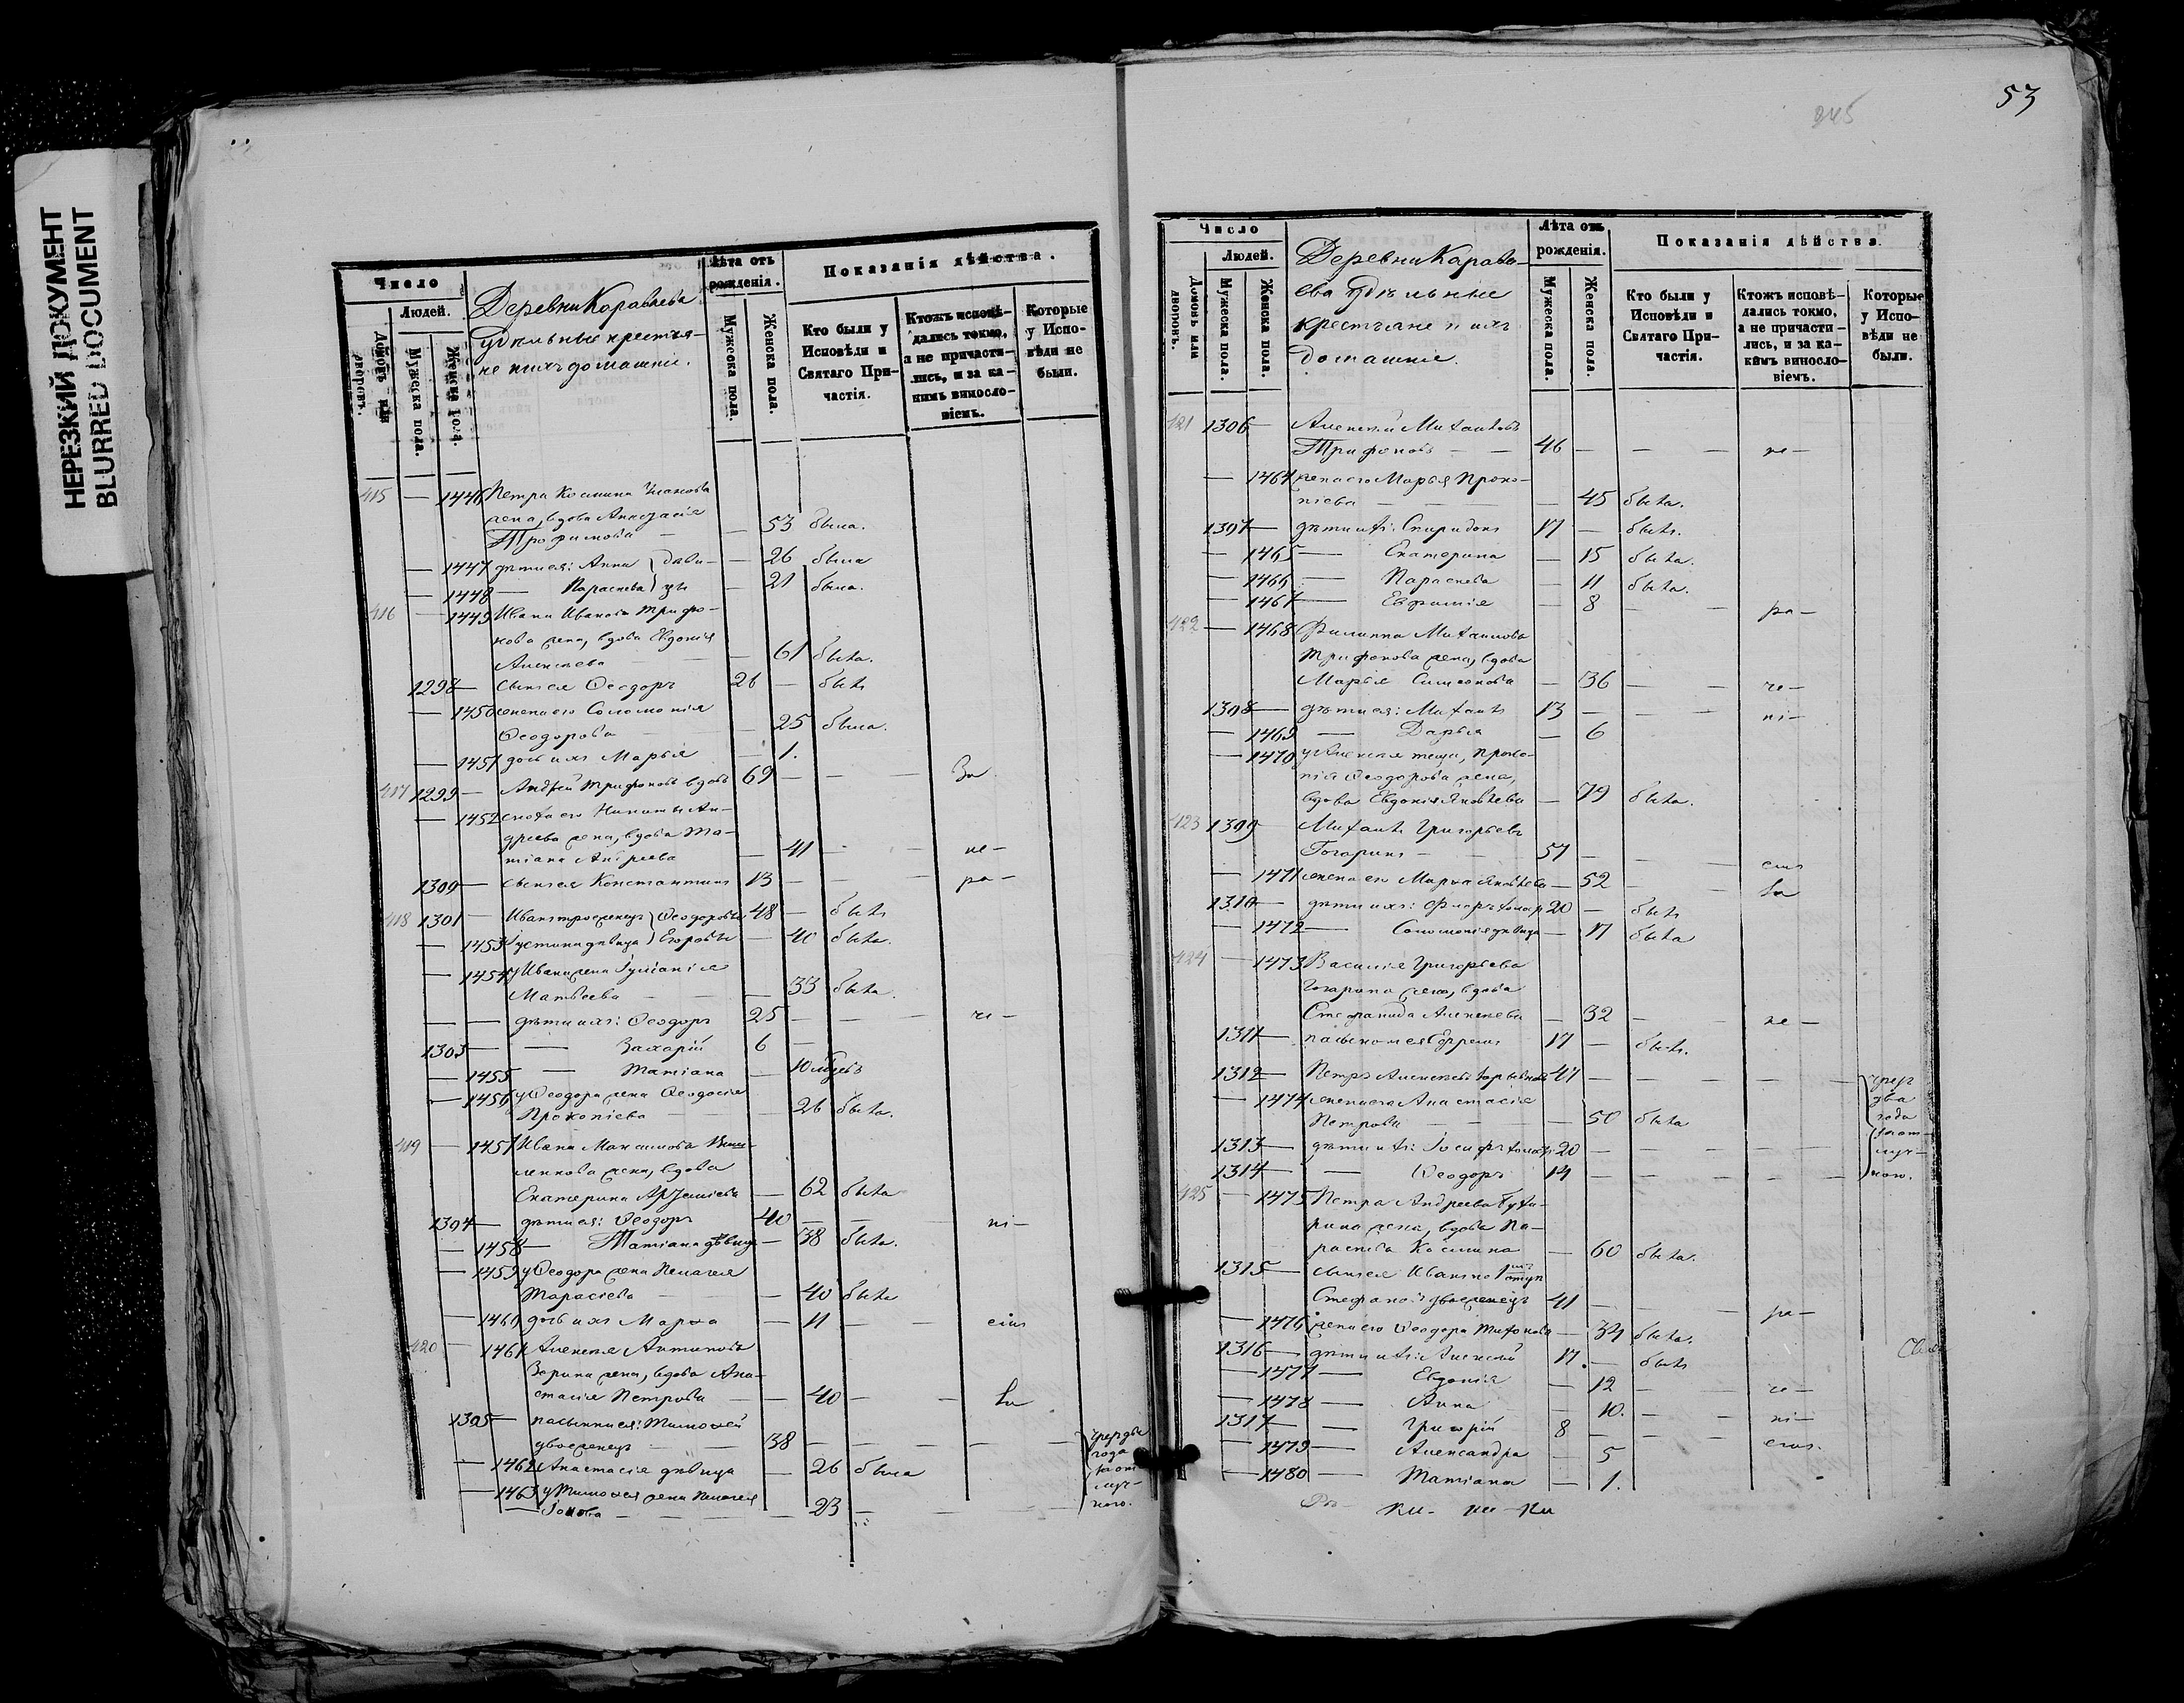 НЕРЕЗКИЙ ДОКУМЕНТ
BLURRED DOCUMENT
Число
Людей.
Домовъ или дворовъ.
Мужеска пола.
Женска пола.
Деревни Караваева
Удѣльные крестья-
не и ихъ домашніе.
Лѣта отъ рожденія.
Мужеска пола.
Женска пола.
Показанія дѣйства.
Кто были у Исповѣди и Святаго При-частія.
Ктожъ исповѣ-дались токмо, а не причасти-лись, и за ка-кимъ винослo-віемъ.
Которые у Испо-вѣди не были.
415 — 1446 Петра Козмина
жена, вдова Анастасія
Трофимова — — 53 была.
— 1447 дѣти ея: Анна } дѣви- — 26 была
— 1448 — Параскева } цы — 21 была.
416 — 1449 Ивана Иванова Трифо-
нова жена, вдова Евдокія
Алексѣева — 61 была.
1298 — сынъ ея Ѳеодоръ 26 — былъ
— 1450 жена его Соломонія
Ѳеодорова — 25 была.
— 1451 дочь ихъ Марья — 1.
417 1299 — Андрей Трифоновъ вдовъ 69 — — — За
— 1452 сноха его Никиты Ан-
дреева жена, вдова Та-
тіана Андреева — 41 — — не —
1300 — сынъ ея Константинъ 13 — — — ра —
418 1301 — Иванъ троеженецъ } Ѳеодоровы 48 — былъ
— 1453 Устинья дѣвица } — 40 была.
— 1454 у Ивана жена Іуліанія
Матвеева — — — 33 была.
— — дѣти ихъ: Ѳеодоръ 25 — — — че —
1303 — — Захарій 6 —
— 1455 — Татіана — 10
— 1456 у Ѳеодора жена Ѳеодосія
Прокопіева — — 26 была.
419 — 1457 Ивана Максимова
жена, вдова
Екатерина Артеміева — 62 была
1304 — дѣти ея: Ѳеодоръ 40 — — — ні —
— 1458 — Татіана дѣвица — 38 была.
— 1459 у Ѳеодора жена Пелагея
Тарасіева — — 40 была
— 1460 дочь ихъ Марѳа — 11 — — емъ
420 — 1461 Алексѣя Антипова
Зорина жена, вдова Ана-
стасія Петрова — — 40 — — —
1305 — пасынки ея: Тимоѳей
двоеженецъ — — 38 — — — —
— 1462 Анастасія дѣвица — 26 была
— 1463 у Тимоѳея жена Пелагея
— Іонова — — — — 23 — — —
чрез два
года
за от-
луч-
кою.
53
245
Число
Людей.
Домовъ или дворовъ.
Мужеска пола.
Женска пола.
Деревни Карава-
ева Удѣльные
крестьяне и ихъ
домашніе.
Лѣта отъ рожденія.
Мужеска пола.
Женска пола.
Показанія дѣйства.
Кто были у Исповѣди и Святаго При-частія.
Ктожъ исповѣ-дались токмо, а не причасти-лись, и за ка-кимъ винослo-віемъ.
Которые у Испо-вѣди не были.
421 1306 — Алексѣй Михайловъ
Трифоновъ — — 46 — — — не —
— 1464 жена его Марья Проко-
піева — — — — 45 была.
1307 — дѣти ихъ: Спиридонъ 17 — былъ.
— 1465 — Екатерина — 15 была.
— 1466 — Параскева — 11 была.
— 1467 — Евфимія — 8 — — ра —
422 — 1468 Филиппа Михайлова
Трифонова жена, вдова
Марья Симеонова — 36 — — че —
1308 — дѣти ея: Михаилъ 13 — — — ні —
— 1469 — Дарья — 6
— 1470 у Алексѣя теща, Проко-
пія Ѳеодорова жена,
вдова Евдокія Яковлева — 79 была.
423 1309 — Михаилъ Григорьевъ
Гогаринъ — — 57 — — — емъ
— 1471 жена его Марѳа Яковлева — 52 — — —
1310 — дѣти ихъ: холос 20 — былъ
— 1472 — Соломонія дѣвица — 17 была
424 — 1473 Василія Григорьева
Гогарина жена, вдова
Стефанида Алексѣева — 32 — — не —
1311 — пасынокъ ея Ефремъ 17 — былъ.
1312 — Петръ Алексѣевъ 47 — — — — —
— 1474 жена его Анастасія
Петрова — — — — 50 была
1313 — дѣти ихъ: Іосифъ холост 20 — — — — —
1314 — — Ѳеодоръ 14 — — — — —
чрез
два
года
за от-
луч-
кою.
425 — 1475 Петра Андреева
жена, вдова Па-
раскева Козмина — 60 была.
1315 — сынъ ея Иванъ по
Стефановъ двоеженецъ 41 — — — ра —
— 1476 жена его Ѳеодора Тихонова — 34 была.
1316 — дѣти ихъ: Алексѣй 17. — былъ
— 1477 — Евдокія — 12 — — че —
— 1478 — Анна — 10. — — ні —
1317 — — Григорій 8 — — — емъ.
— 1479 — Александра — 5
— 1480 — Татіана — 1.